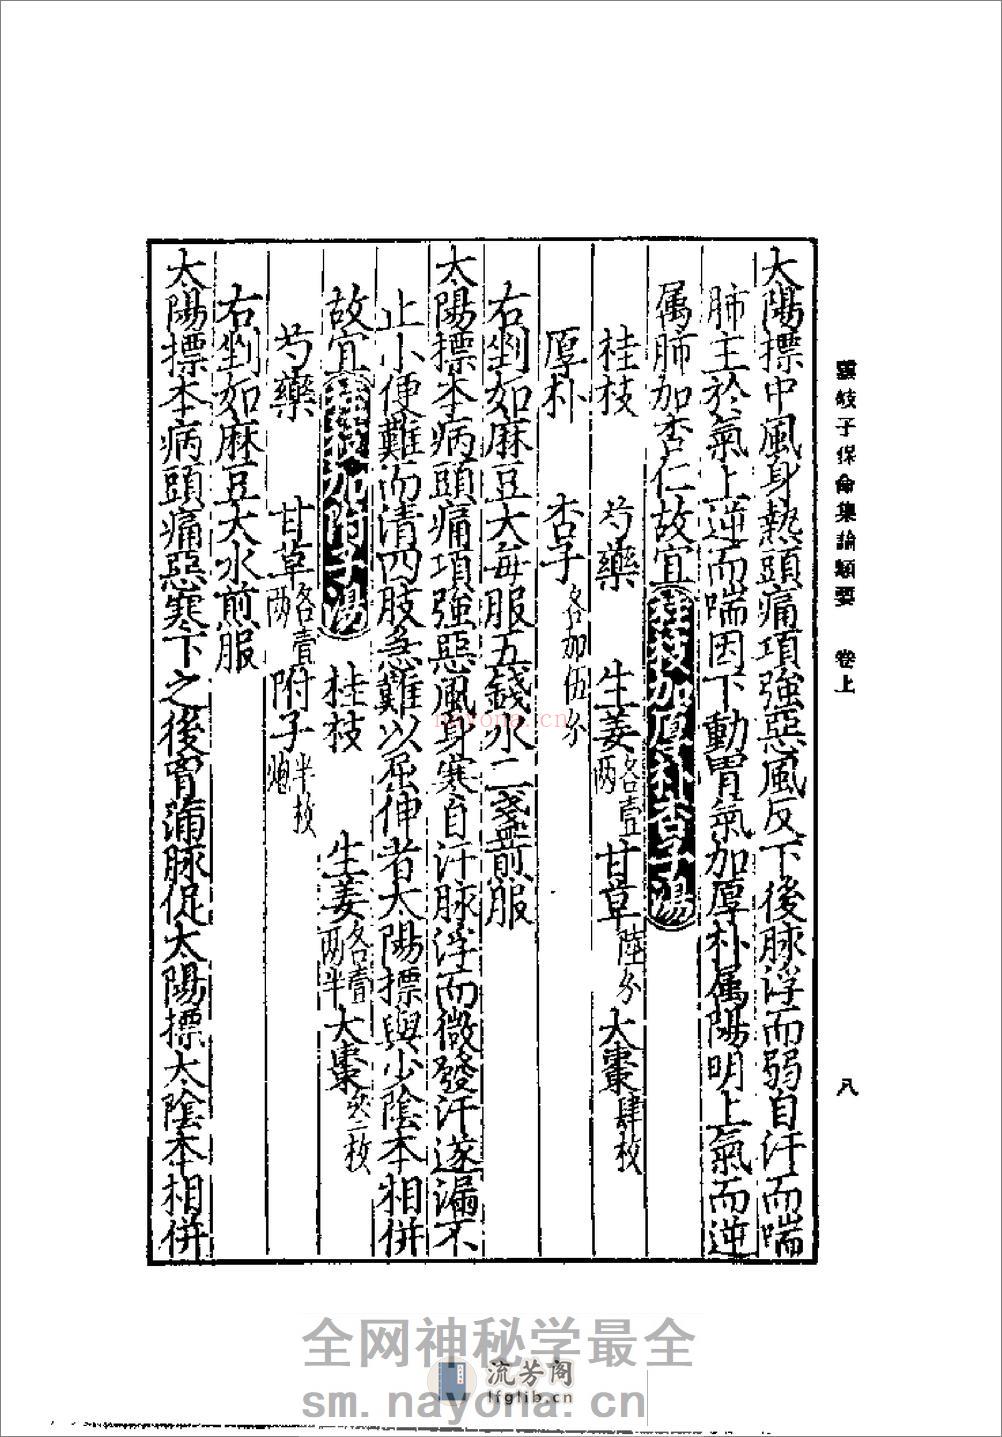 雲岐子保命集論類要　卷上　八
太陽摽中風身熱頭痛項強惡風反下後脉浮而弱自汗而喘
肺主於氣上逆而喘因下動胃氣加厚朴属陽明上氣而逆
属肺加杏仁故宜桂枝加厚朴杏子湯
桂枝　芍藥　生姜各壹兩　甘草陸分　大棗肆枚
厚朴　杏子各加伍分
右剉如麻豆大每服五錢水二盞煎服
太陽摽本病頭痛項強惡風身寒自汗脉浮而微發汗遂漏不
止小便難而清四肢急難以屈伸者太陽摽與少陰本相併
故宜桂枝加附子湯　桂枝　生姜各壹兩半　大棗枚
芍藥　甘草各壹兩　附子半枚炮
右剉如麻豆大水煎服
太陽摽本病頭痛惡寒下之後胷滿脉促太陽摽太陰本相併
nayona.cn
全网神秘学最全
流芳阁
lfglib.cn
sm.nayona.cn